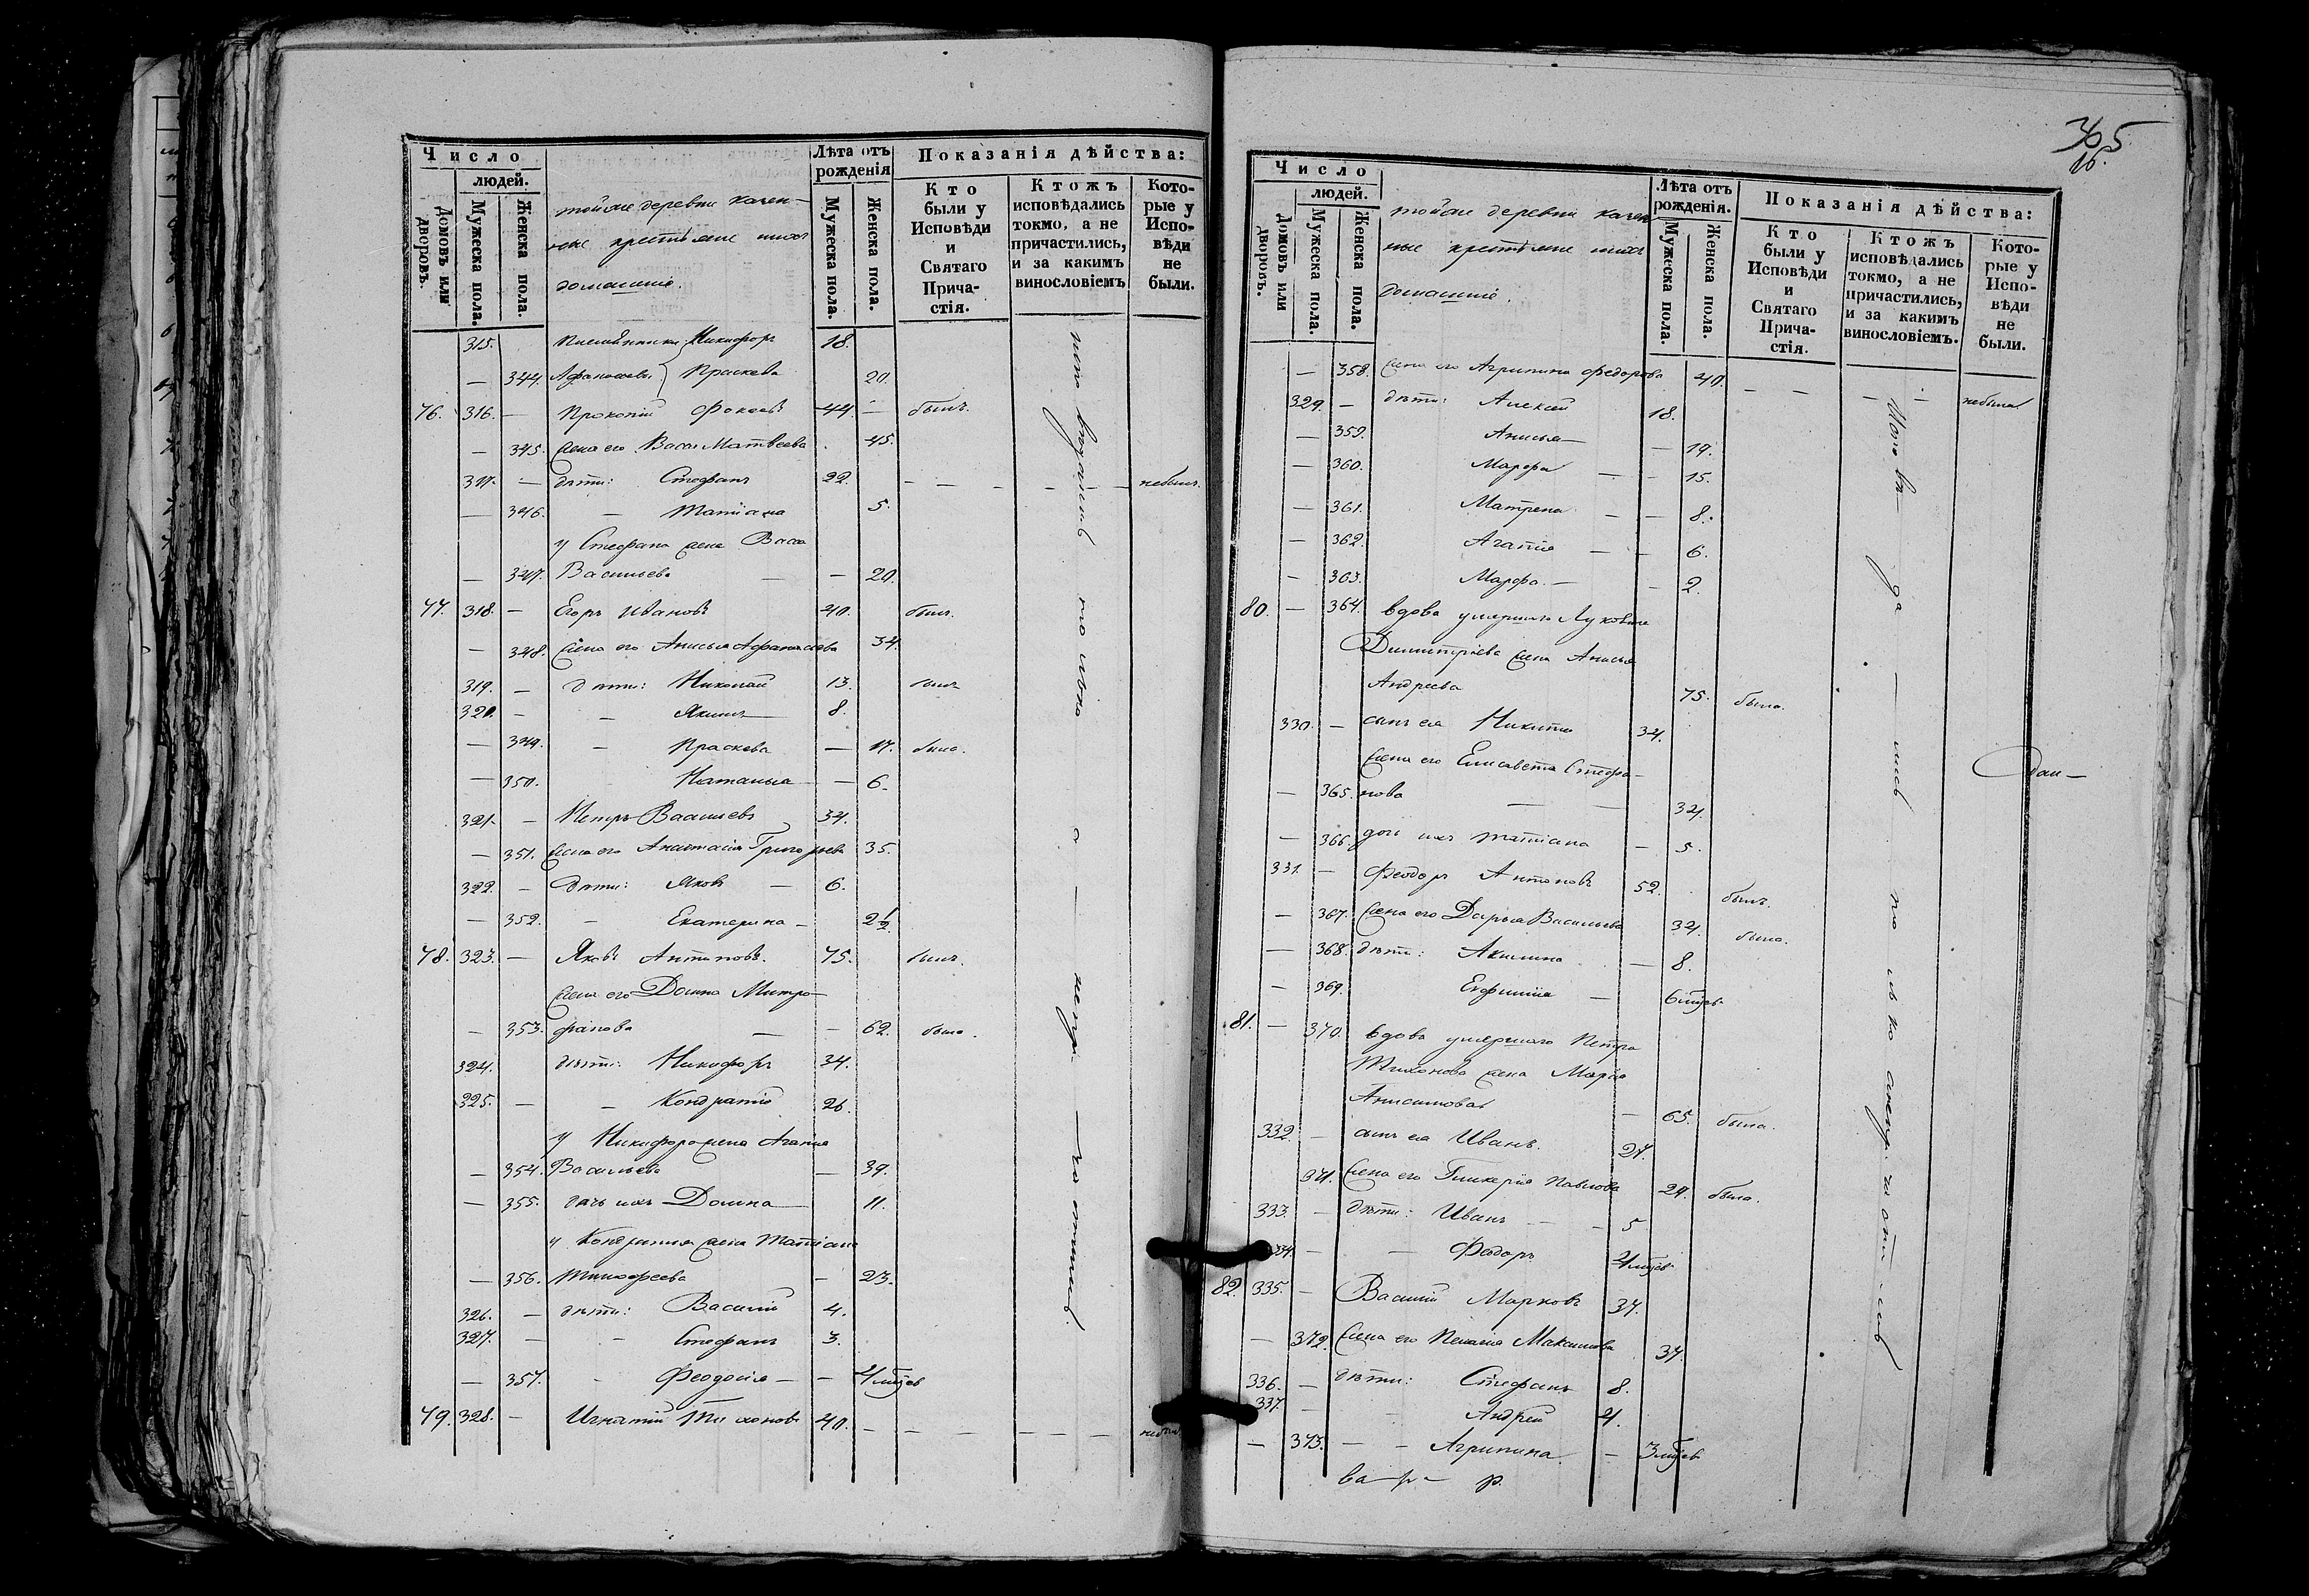 Число
людей.
Домовъ или дворовъ.
Мужеска пола.
Женска пола.
тойже деревни казен-
ные крестьяне и ихъ
домашніе.
Лѣта отъ рожденія
Мужеска пола.
Женска пола.
Показанія дѣйства:
Кто были у Исповѣди и Святаго Прича-стія.
Ктожъ исповѣдались токмо, а не причастились, и за какимъ винословіемъ
Кото-рые у Испо-вѣди не были.
315. Племянники Никифоръ 18.
— 344. Афанасьевы Праскева 20.
76. 316. — Прокопій Фокаевъ 44. — былъ.
— 345. жена его Васса Матвеева 45.
317. — дѣти: Стефанъ 22. — — — — — — небылъ.
— 346. — Татіана 5.
у Стефана жена Васса
— 347. Васильева — — 20.
77. 318. — Егоръ Ивановъ 40. былъ.
— 348. жена его Анисья Афанасьева 34.
319. — дѣти: Николай 13. былъ
320. — — Якимъ 8.
— 349. — Праскева — 17. была.
— 350. Наталья — 6.
321. — Петръ Васильевъ 34.
— 351. жена его Анастасія Григорьева 35.
322. — дѣти: Яковъ — 6.
— 352. — Екатерина — 2½
78. 323. — Яковъ Антиповъ. 75. былъ.
жена его Домна Митро-
— 353. фанова — — 62. была.
324. дѣти: Никифоръ 34.
325. — — Кондратій 26.
у Никифора жена Агапія
— 354. Васильева — 39.
— 355. дочь ихъ Домна 11.
у Кондратія жена Татіана
— 356. Тимофеева — 23.
326. — дѣти: Василій 4.
327. — — Стефанъ 3.
— 357. — Феодосія — — 4 мѣсев
79. 328. — Игнатій Тихоновъ 40. — — — — — —
305
16.
Число
людей.
Домовъ или дворовъ.
Мужеска пола.
Женска пола.
тойже деревни казен
ные крестьяне и ихъ
домашніе.
Лѣта отъ рожденія.
Мужеска пола.
Женска пола.
Показанія дѣйства:
Кто были у Исповѣди и Святаго Прича-стія.
Ктожъ исповѣдались токмо, а не причастились, и за какимъ винословіемъ.
Кото-рые у Испо-вѣди не были.
— 358. жена его Агрипина Федорова 40. — — — небыла.
329. — дѣти: Алексѣй 18.
— 359. Анисья — — 19.
— 360. Марфа — — 15.
— 361. Матрена — — 8.
— 362. Агапія — — 6.
— 363. Марфа. — — 2.
80. — 364. вдова умершаго Луковна
Димитріева жена Анисья
Андреева 75. была.
330. — сынъ ея Никита 34.
жена его Елисавета Стефа-
— 365. нова — — 34.
— 366. дочь ихъ Татіана — 5.
331. — Феодоръ Антоновъ 52. былъ.
— 367. жена его Дарья Васильева 34. была.
— 368. дѣти: Акилина — 8.
— 369. Ефимія — 6 мѣсев
81. — 370. вдова умершаго Петра
Тихонова жена Марія
Анисимова — 65. была.
332. — сынъ ея Иванъ. 27.
371. жена его Гликерія Павлова 24. была.
333. — дѣти: Иванъ — — 5
334. — — Феодоръ 4 мѣсев
82. 335. — Василій Марковъ 37.
— 372. жена его Пелагія Максимова 37.
336. — дѣти: Стефанъ 8.
337. — Андрей 4.
— 373. — — Агрипина. — 3 мѣсев